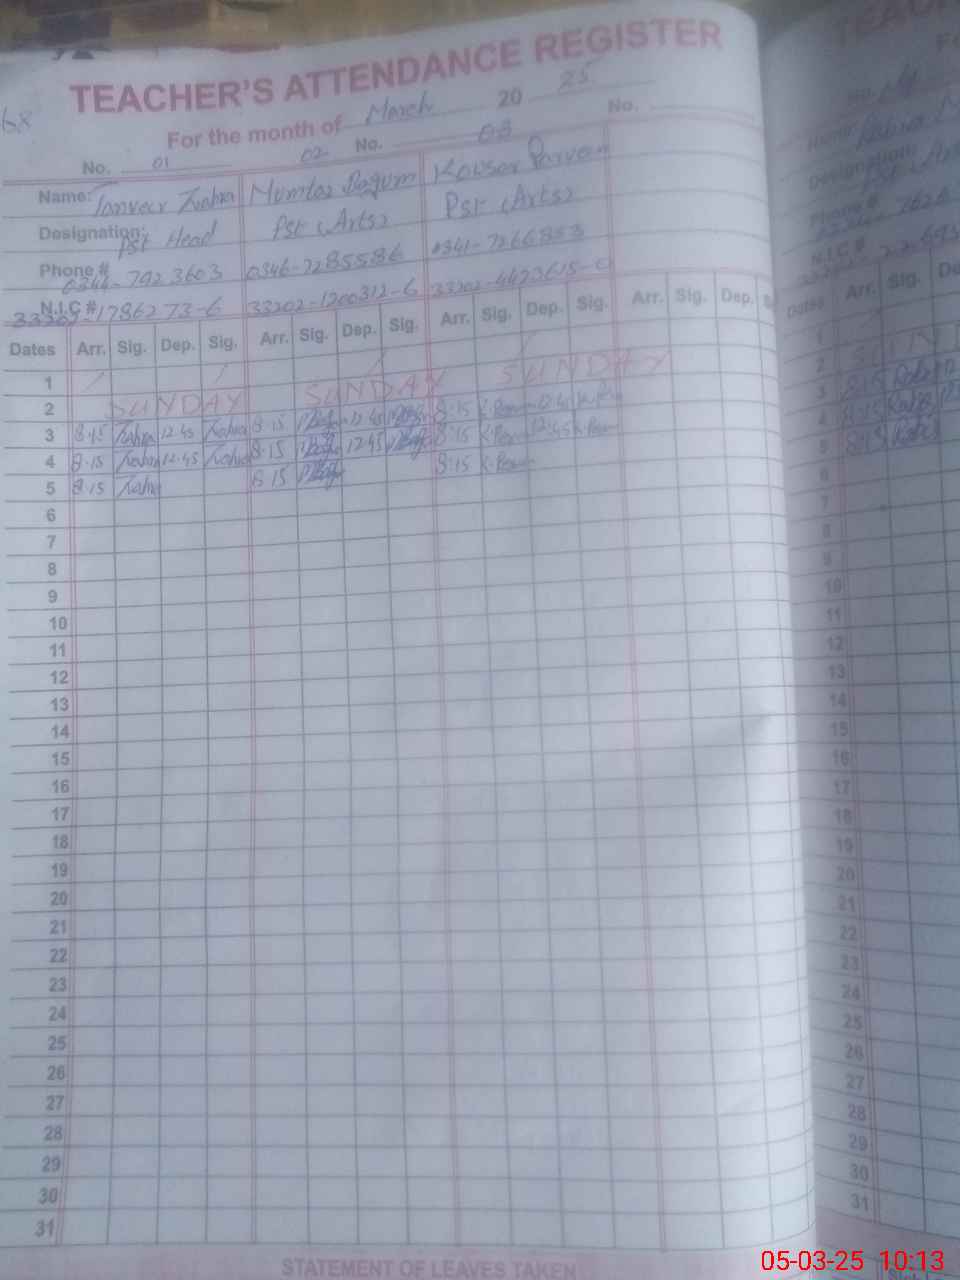 68
TEACHER'S ATTENDANCE REGISTER
For the month of March 2025
No. 01 02 No. 03 No.
Name: Tanveer Zahra Mumtaz Begum Kousar Parveen
Designation: Pst Head Pst (Arts) Pst (Arts)
Phone # 0344-7923603 0346-7285586 0341-7266853
N.I.C # 33202-1786273-6 33202-1200312-6 33202-4423615-0
Dates Arr. Sig. Dep. Sig. Arr. Sig. Dep. Sig. Arr. Sig. Dep. Sig. Arr. Sig. Dep. S
1
2 SUNDAY SUNDAY SUNDAY
3 8:15 Zahra 12:45 Zahra 8:15 12:45 8:15 K.Parveen 12:45 K.Parveen
4 8:15 Zahra 12:45 Zahra 8:15 12:45 8:15 K.Parveen 12:45 K.Parveen
5 8:15 Zahra 8:15 8:15 K.Parveen
6
7
8
9
10
11
12
13
14
15
16
17
18
19
20
21
22
23
24
25
26
27
28
29
30
31
STATEMENT OF LEAVES TAKEN
TEACH
Phone #
N.I.C #
Dates Arr. Sig. De
1
2 SUN
3 8:15
4 8:15
5 8:15
6
7
8
9
10
11
12
13
14
15
16
17
18
19
20
21
22
23
24
25
26
27
28
29
30
31
05-03-25 10:13